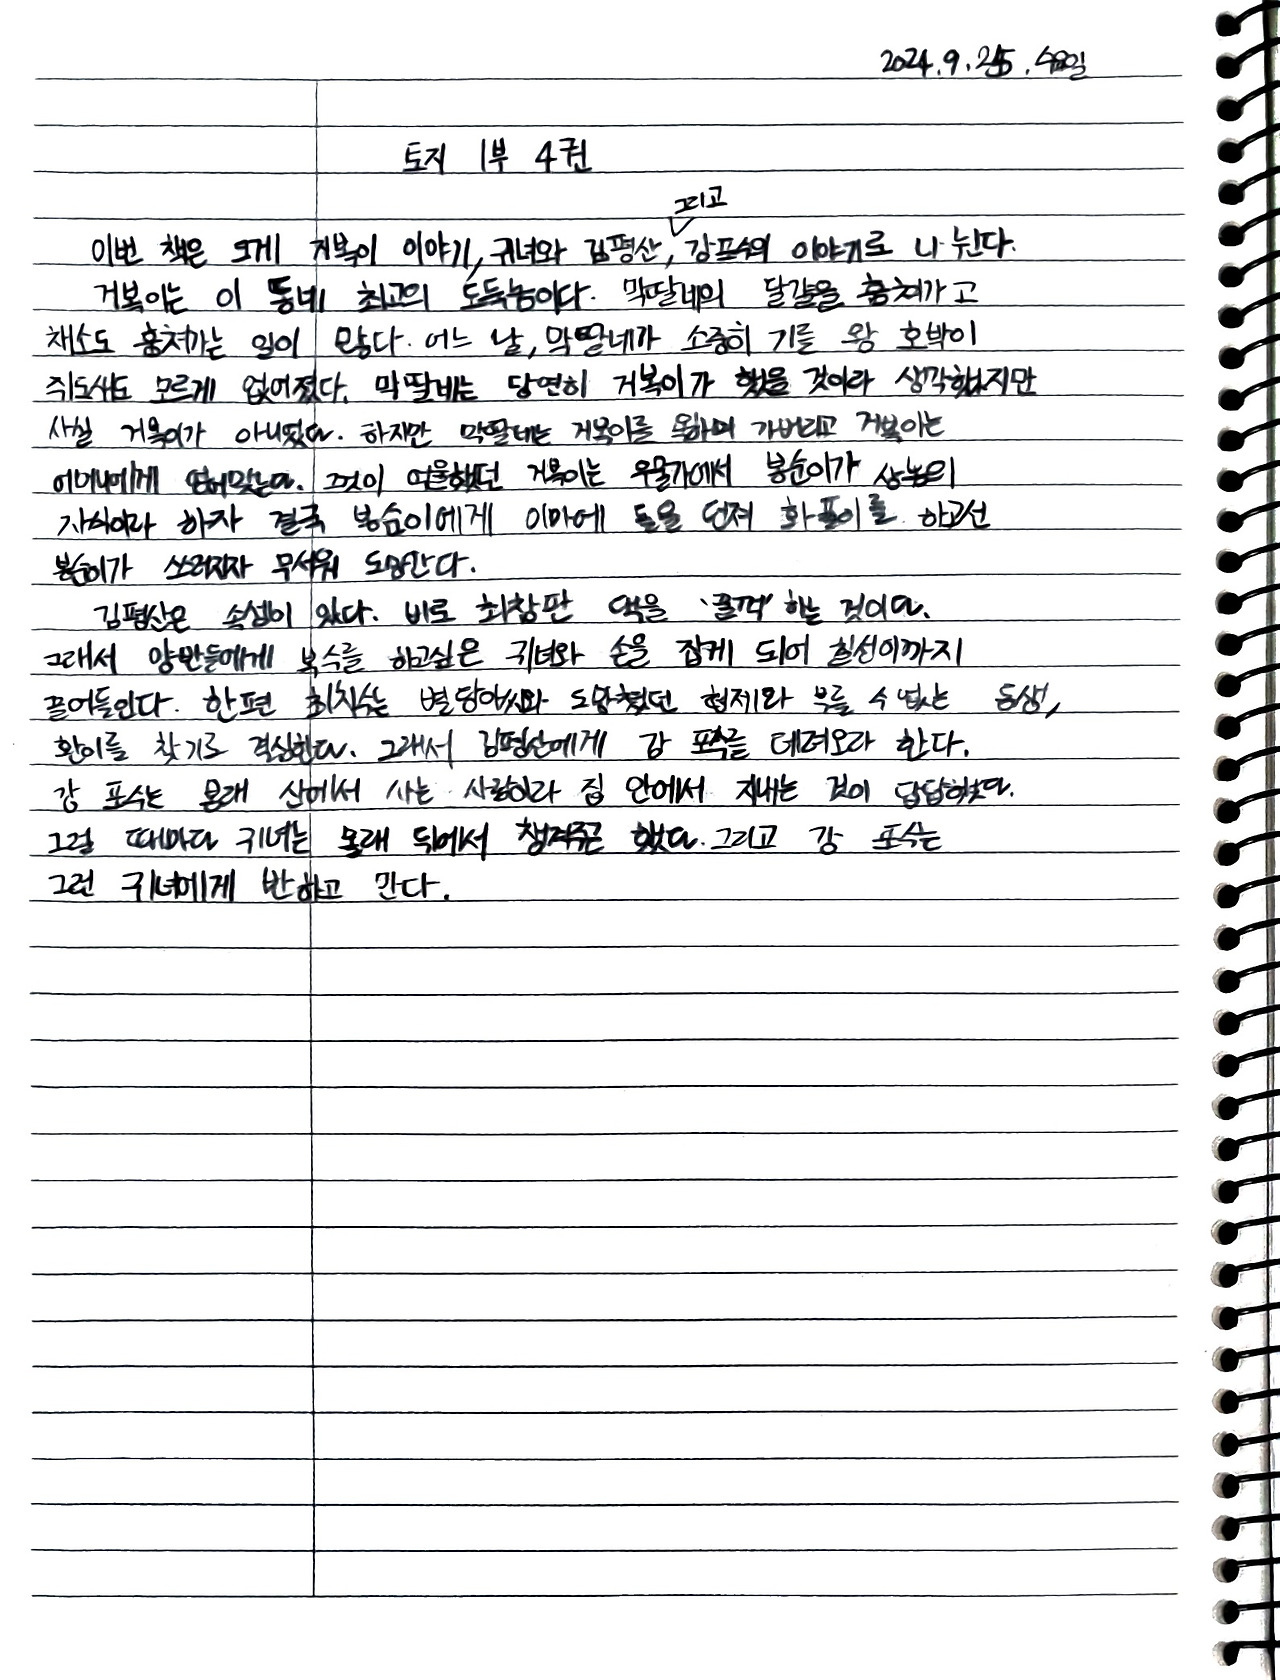 2024.9.25.수요일
토지 1부 4권
그리고
이번 책은 크게 거복이 이야기, 귀녀와 김평산, 강포수의 이야기로 나뉜다.
거복이는 이 동네 최고의 도둑놈이다. 막딸네의 달걀을 훔쳐가고
채소도 훔쳐가는 일이 많다. 어느 날, 막딸네가 소중히 기를 왕 호박이
쥐도새도 모르게 없어졌다. 막딸네는 당연히 거복이가 했을 것이라 생각했지만
사실 거복이가 아니었다. 하지만 막딸네는 거복이를 욕하며 가버리고 거복이는
어머니에게 얻어맞는다. 그것이 억울했던 거복이는 우물가에서 봉순이가 살인의
자식이라 하자 결국 봉순이에게 이마에 돌을 던져 화풀이를 하고선
봉순이가 쓰러지자 무서워 도망간다.
김평산은 속셈이 있다. 바로 최참판 댁을 '꿀꺽' 하는 것이다.
그래서 양반들에게 복수를 하고싶은 귀녀와 손을 잡게 되어 칠성이까지
끌어들인다. 한편 최치수는 별당아씨와 도망쳤던 형제와 부를 수 없는 동생,
환이를 찾기로 결심한다. 그래서 김평산에게 강 포수를 데려오라 한다.
강 포수는 원래 산에서 사는 사람이라 집 안에서 지내는 것이 답답하였다.
그럴 때마다 귀녀는 몰래 뒤에서 챙겨주곤 했다. 그리고 강 포수는
그런 귀녀에게 반하고 만다.